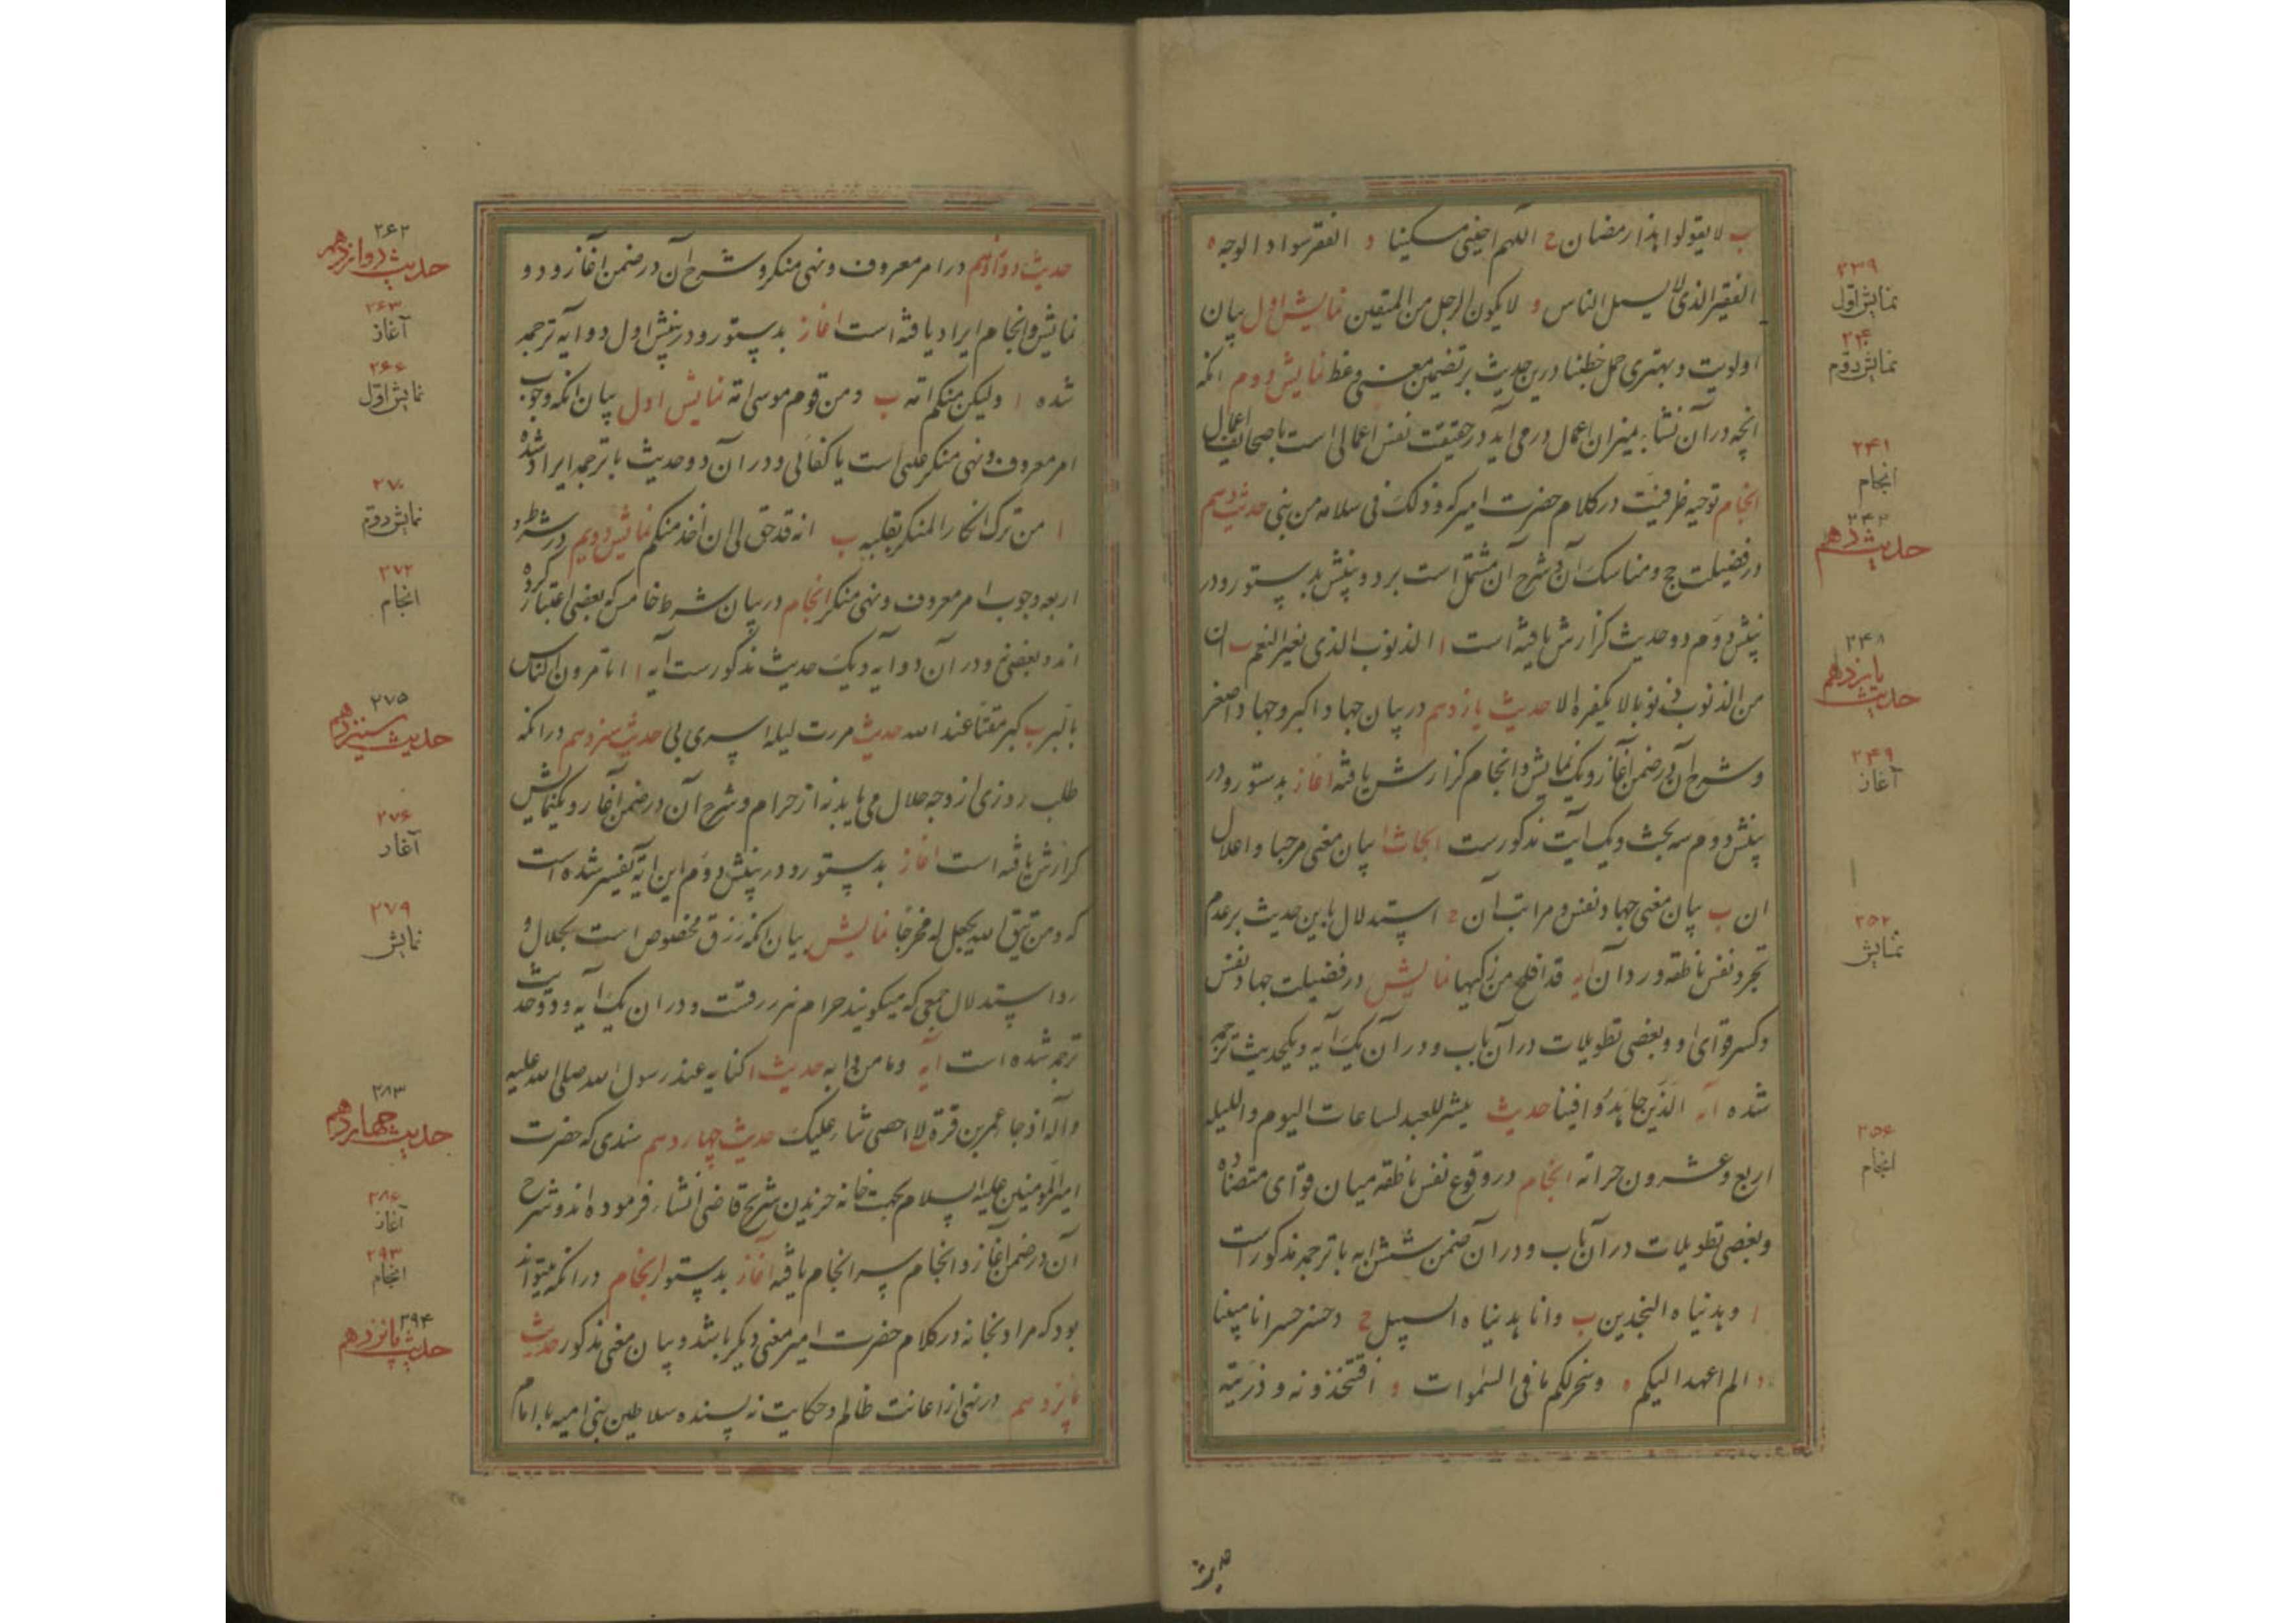 ب لا یقولوا هذا رمضان ج اللهم احینی مسکینا د الفقر سواد الوجه ه
الفقیر الذی لا یسیل الناس و لا یکون الرجل من المتقین نمایش اول بیان
اولویت و بهتری حمل خطبنا درین حدیث بر تضمین معنی وعظ نمایش دوم انکه
انچه در آن نشأ بمیزان اعمال در می آید در حقیقت نفس اعمالی است یا صحایف اعمال
انجام توجیه ظرفیت در کلام حضرت امیر که و ذلک فی سلامه من بنی حدیث دهم
در فضیلت حج و مناسک آن و شرح آن مشتمل است بر دو بینش بدستور و در
بینش دوم دو حدیث کزارش یافته است ا الذنوب الذی یغیر النعم ب ان
من الذنوب ذنوبا لا یکفره الا حدیث یازدهم در بیان جهاد اکبر و جهاد اصغر
و شرح آن در ضمن آغاز و یک نمایش و انجام کزارش یافته اغاز بدستور و در
بینش دوم سه بحث و یک آیت مذکورست ابحاث ا بیان معنی مرحبا و اعلال
ان ب بیان معنی جهاد نفس و مراتب آن ج استدلال باین حدیث بر عدم
تجرد نفس ناطقه و رد آن ایه قد افلح من زکیها نمایش در فضیلت جهاد نفس
و کسر قوای او و بعضی تطویلات در آن باب و در آن یک آیه و یکحدیث ترجمه
شده آیه الذین جاهدوا فینا حدیث ینشر للعبد لساعات الیوم و اللیله
اربع و عشرون خزانه انجام در وقوع نفس ناطقه میان قوای متضاده
و بعضی تطویلات در آن باب و در آن ضمن شش ایه با ترجمه مذکور است
ا و هدیناه النجدین ب و انا هدیناه السبیل ج و خسر خسرانا مبینا
د الم اعهد الیکم ه و سخر لکم ما فی السموات و افتتخذونه و ذریته
حدیث
۲۳۹
نمایش اوّل
۲۴۰
نمایش دوّم
۲۴۱
انجام
۲۴۳
حدیث دهم
۲۴۸
حدیث یازدهم
۲۴۹
آغاز
۲۵۲
نمایش
۲۵۶
انجام
حدیث دوازدهم در امر معروف و نهی منکر و شرح آن در ضمن اغاز و دو
نمایش و انجام ایراد یافته است اغاز بدستور و در بینش اول دو ایه ترجمه
شده ا ولیکن منکم امه ب و من قوم موسی امه نمایش اول بیان انکه وجوب
امر معروف و نهی منکر عینی است یا کفائی و در آن دو حدیث با ترجمه ایراد شده
ا من ترک انکار المنکر بقلبه ب انه قد حق لی ان اخذ منکم نمایش دویم در شروط
اربعه وجوب امر معروف و نهی منکر انجام در بیان شرط خامس که بعضی اعتبار کرده
اند و بعضی نه و در آن دو ایه و یک حدیث مذکورست آیه ا اتامرون الناس
بالبر ب کبر مقتا عند الله حدیث مررت لیله اسری بی حدیث سیزدهم در انکه
طلب روزی از وجه حلال می باید نه از حرام و شرح آن در ضمن آغاز و یکنمایش
کزارش یافته است اغاز بدستور و در بینش دوم این ایه تفسیر شده است
که و من یتق الله یجعل له مخرجا نمایش بیان انکه رزق مخصوص است بحلال و
رد استدلال جمعی که میکویند حرام نیز رزقست و در ان یک آیه و دو حدیث
ترجمه شده است آیه و ما من دابه حدیث ا کنا یه عند رسول الله صلی الله علیه
و آله اذ جا عمر بن قرة لا احصی ثناء علیک حدیث چهاردهم سندی که حضرت
امیر المومنین علیه السلام بجهت خانه خریدن شریح قاضی انشاء فرموده اند و شرح
آن در ضمن اغاز و انجام سرانجام یافته آغاز بدستور انجام در انکه میتواند
بود که مراد بخانه در کلام حضرت امیر معنی دیکر باشد و بیان معنی مذکور حدیث
پانزدهم در نهی از اعانت ظالم و حکایت نویسنده سلاطین بنی امیه با امام
۲۶۲
حدیث دوازدهم
۲۶۳
آغاز
۲۶۶
نمایش اوّل
۲۷۰
نمایش دوّم
۲۷۲
انجام
۲۷۵
حدیث سیزدهم
۲۷۶
آغاز
۲۷۹
نمایش
۲۸۳
حدیث چهاردهم
۲۸۶
آغاز
۲۹۳
انجام
۲۹۴
حدیث پانزدهم